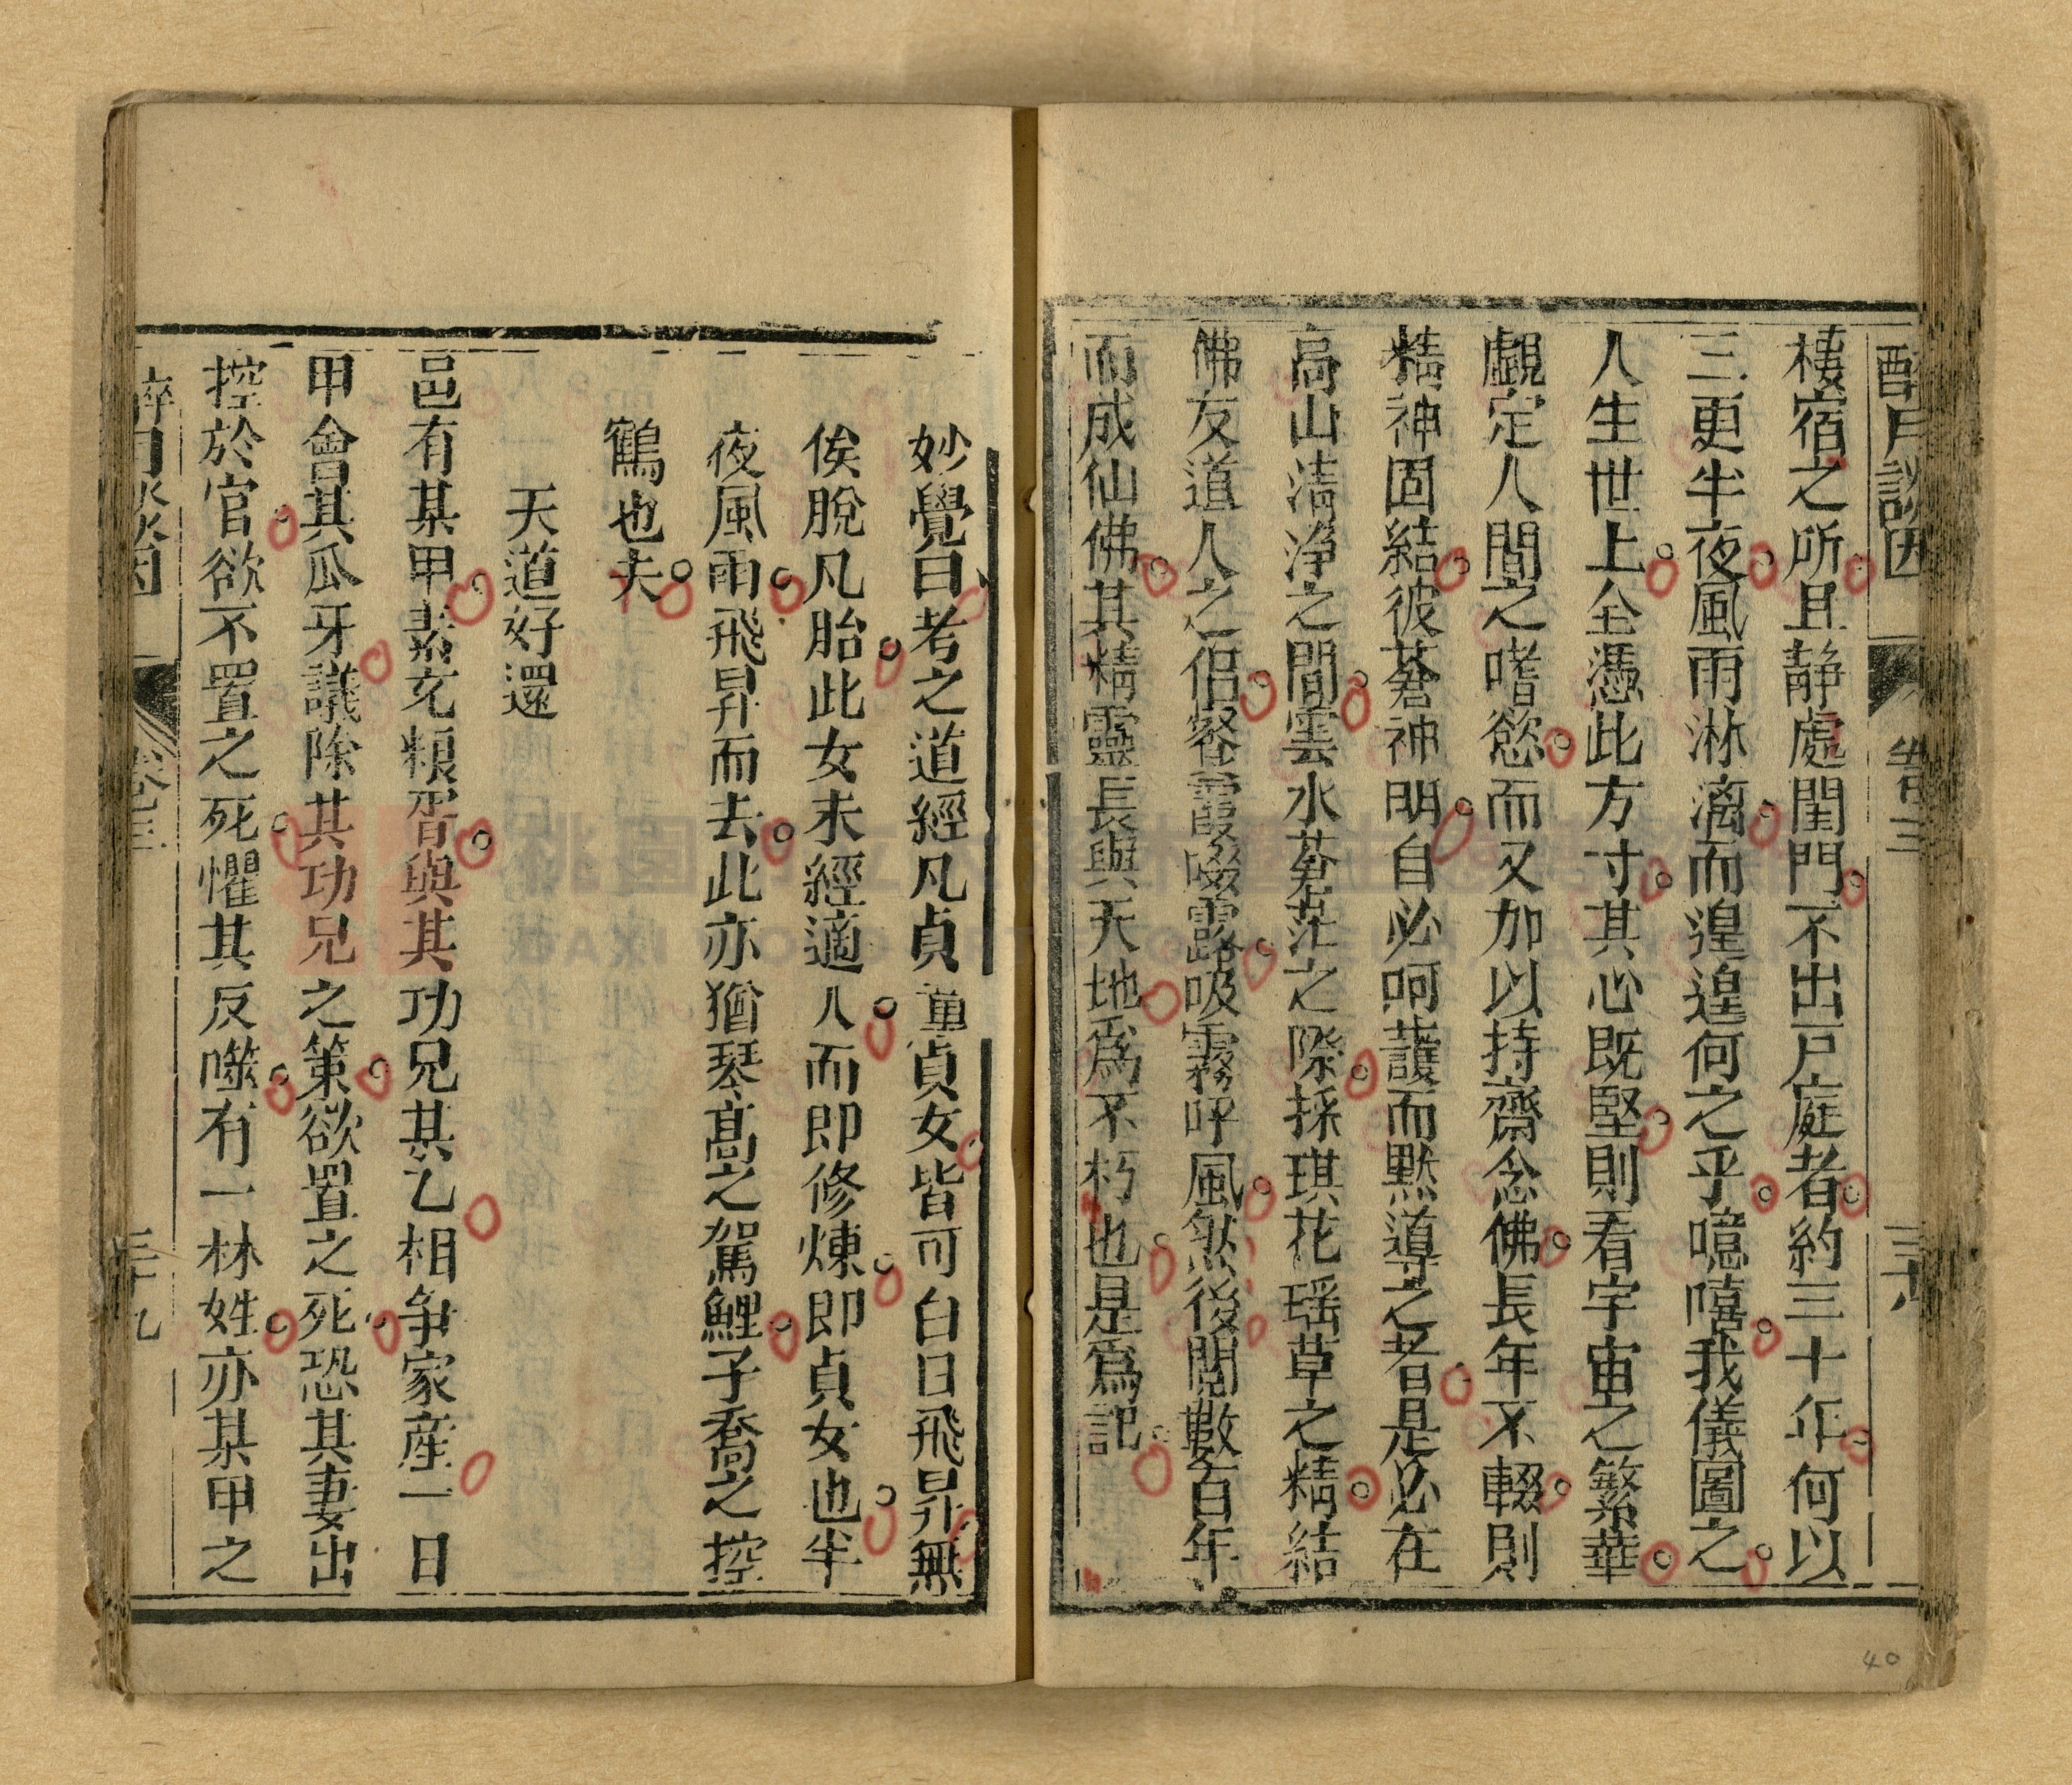 醉月談因 卷三 三十八
棲宿之所且静處閨門不出戸庭者約三十年何以
三更半夜風雨淋漓而遑遑何之乎噫嘻我儀圖之
人生世上全憑此方寸其心既堅則看宇宙之繁華
覷定人間之嗜慾而又加以持齋念佛長年不輟則
精神固結彼蒼神明自必呵護而黙導之者是必在
高山清净之間雲水蒼茫之際採琪花瑶草之精結
佛友道人之侣餐霞啜露吸霧呼風然後閲數百年
而成仙佛其精靈長與天地爲不朽也是爲記
妙覺曰考之道經凡貞童貞女皆可白日飛昇無
俟脫凡胎此女未經適人而即修煉即貞女也半
夜風雨飛昇而去此亦猶琴高之駕鯉子喬之控
鶴也夫
天道好還
邑有某甲素充糧胥與其功兄某乙相争家産一日
甲會其瓜牙議除其功兄之策欲置之死恐其妻出
控於官欲不置之死懼其反噬有一林姓亦某甲之
醉月談因 卷三 三十九
40